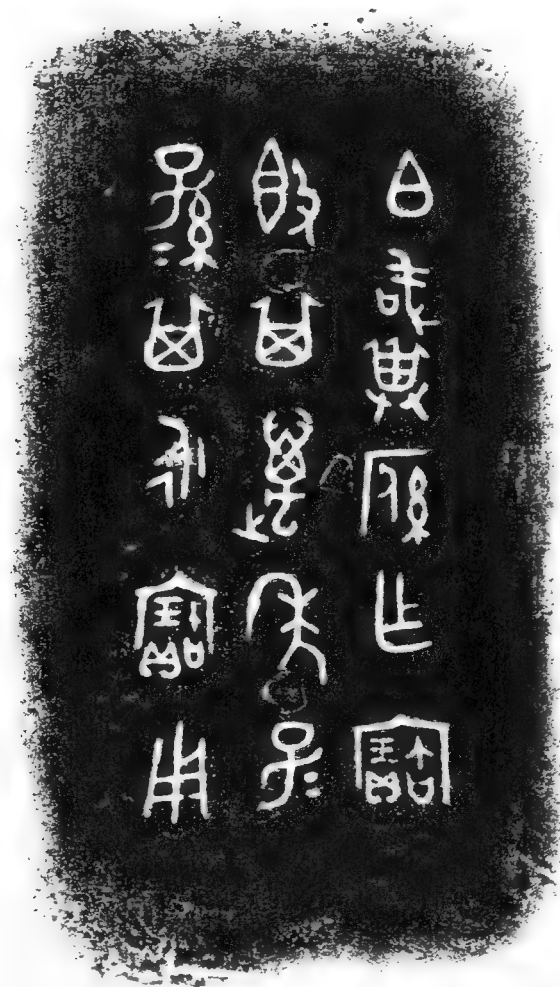 白其乍寶
𣪘其萬年子=
孫=其永寶用